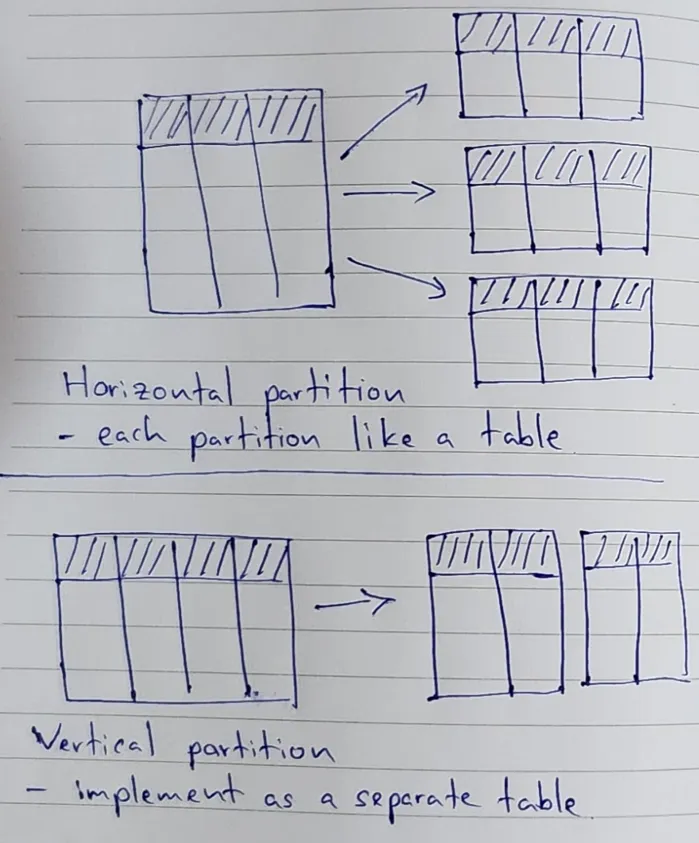 Horizontal partition
- each partition like a table
Vertical partition
- implement as a separate table